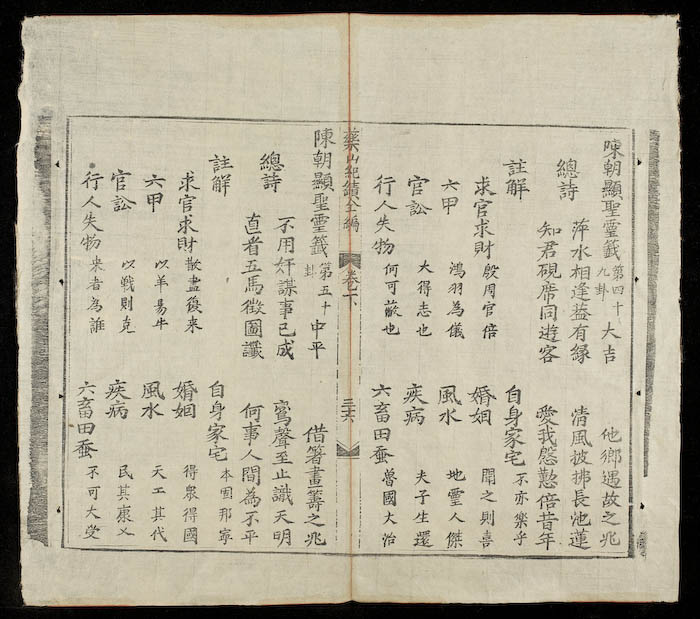 陳朝顯聖靈籤 第四十九卦 大吉 他鄉遇故之兆
總詩 萍水相逢蓋有緣 清風披拂長池蓮
知君硯席同遊客 愛我慇懃倍昔年
註解 自身家宅 不亦樂乎
求官求財 殷周官倍 婚姻 聞之則喜
六甲 鴻羽為儀 風水 地靈人傑
官訟 大得志也 疾病 夫子生還
行人失物 何可蔽也 六畜田蚕 魯國大治
藥山紀績全編 卷下 三十六
陳朝顯聖靈籤 第五十卦 中平 借箸畫籌之兆
不用奸謀事已成 鸞聲至止識天明
總詩 直者五馬徵圖讖 何事人間為不平
註解 自身家宅 本固邦寧
求官求財 散盡復來 婚姻 得衆得國
六甲 以羊易牛 風水 天工其代
官訟 以戰則克 疾病 民其康乂
行人失物 來者為誰 六畜田蚕 不可大受